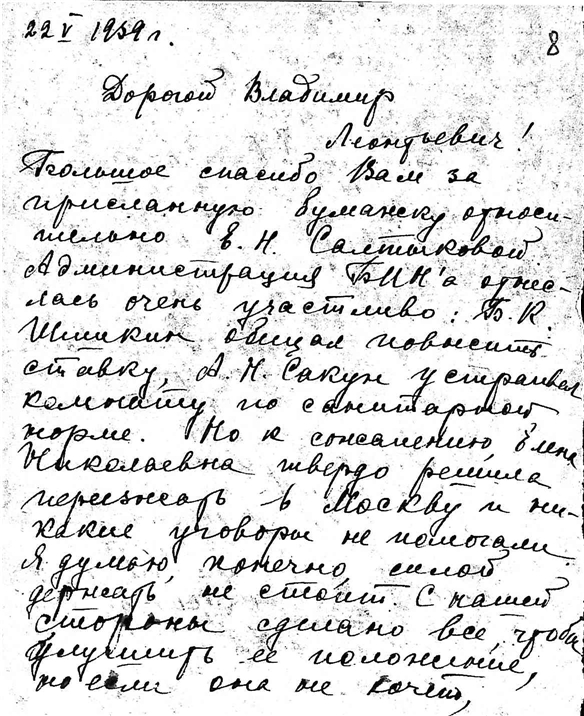 22 V 1959 г.
8
Дорогой Владимир
Леонтьевич!
Большое спасибо Вам за
присланную бумажку относи-
тельно Е. Н. Салтыковой
Администрация БИН'а отнес-
лась очень участливо: Б. К.
Шишкин обещал повысить
ставку, А. Н. Сакун устраивал
комнату по санитарной
норме. Но к сожалению, Елена
Николаевна твердо решила
переезжать в Москву и ни-
какие уговоры не помогали.
Я думаю, конечно силой
держать не стоит. С нашей
стороны сделано все, чтобы
улучшить ее положение,
но если она не хочет,